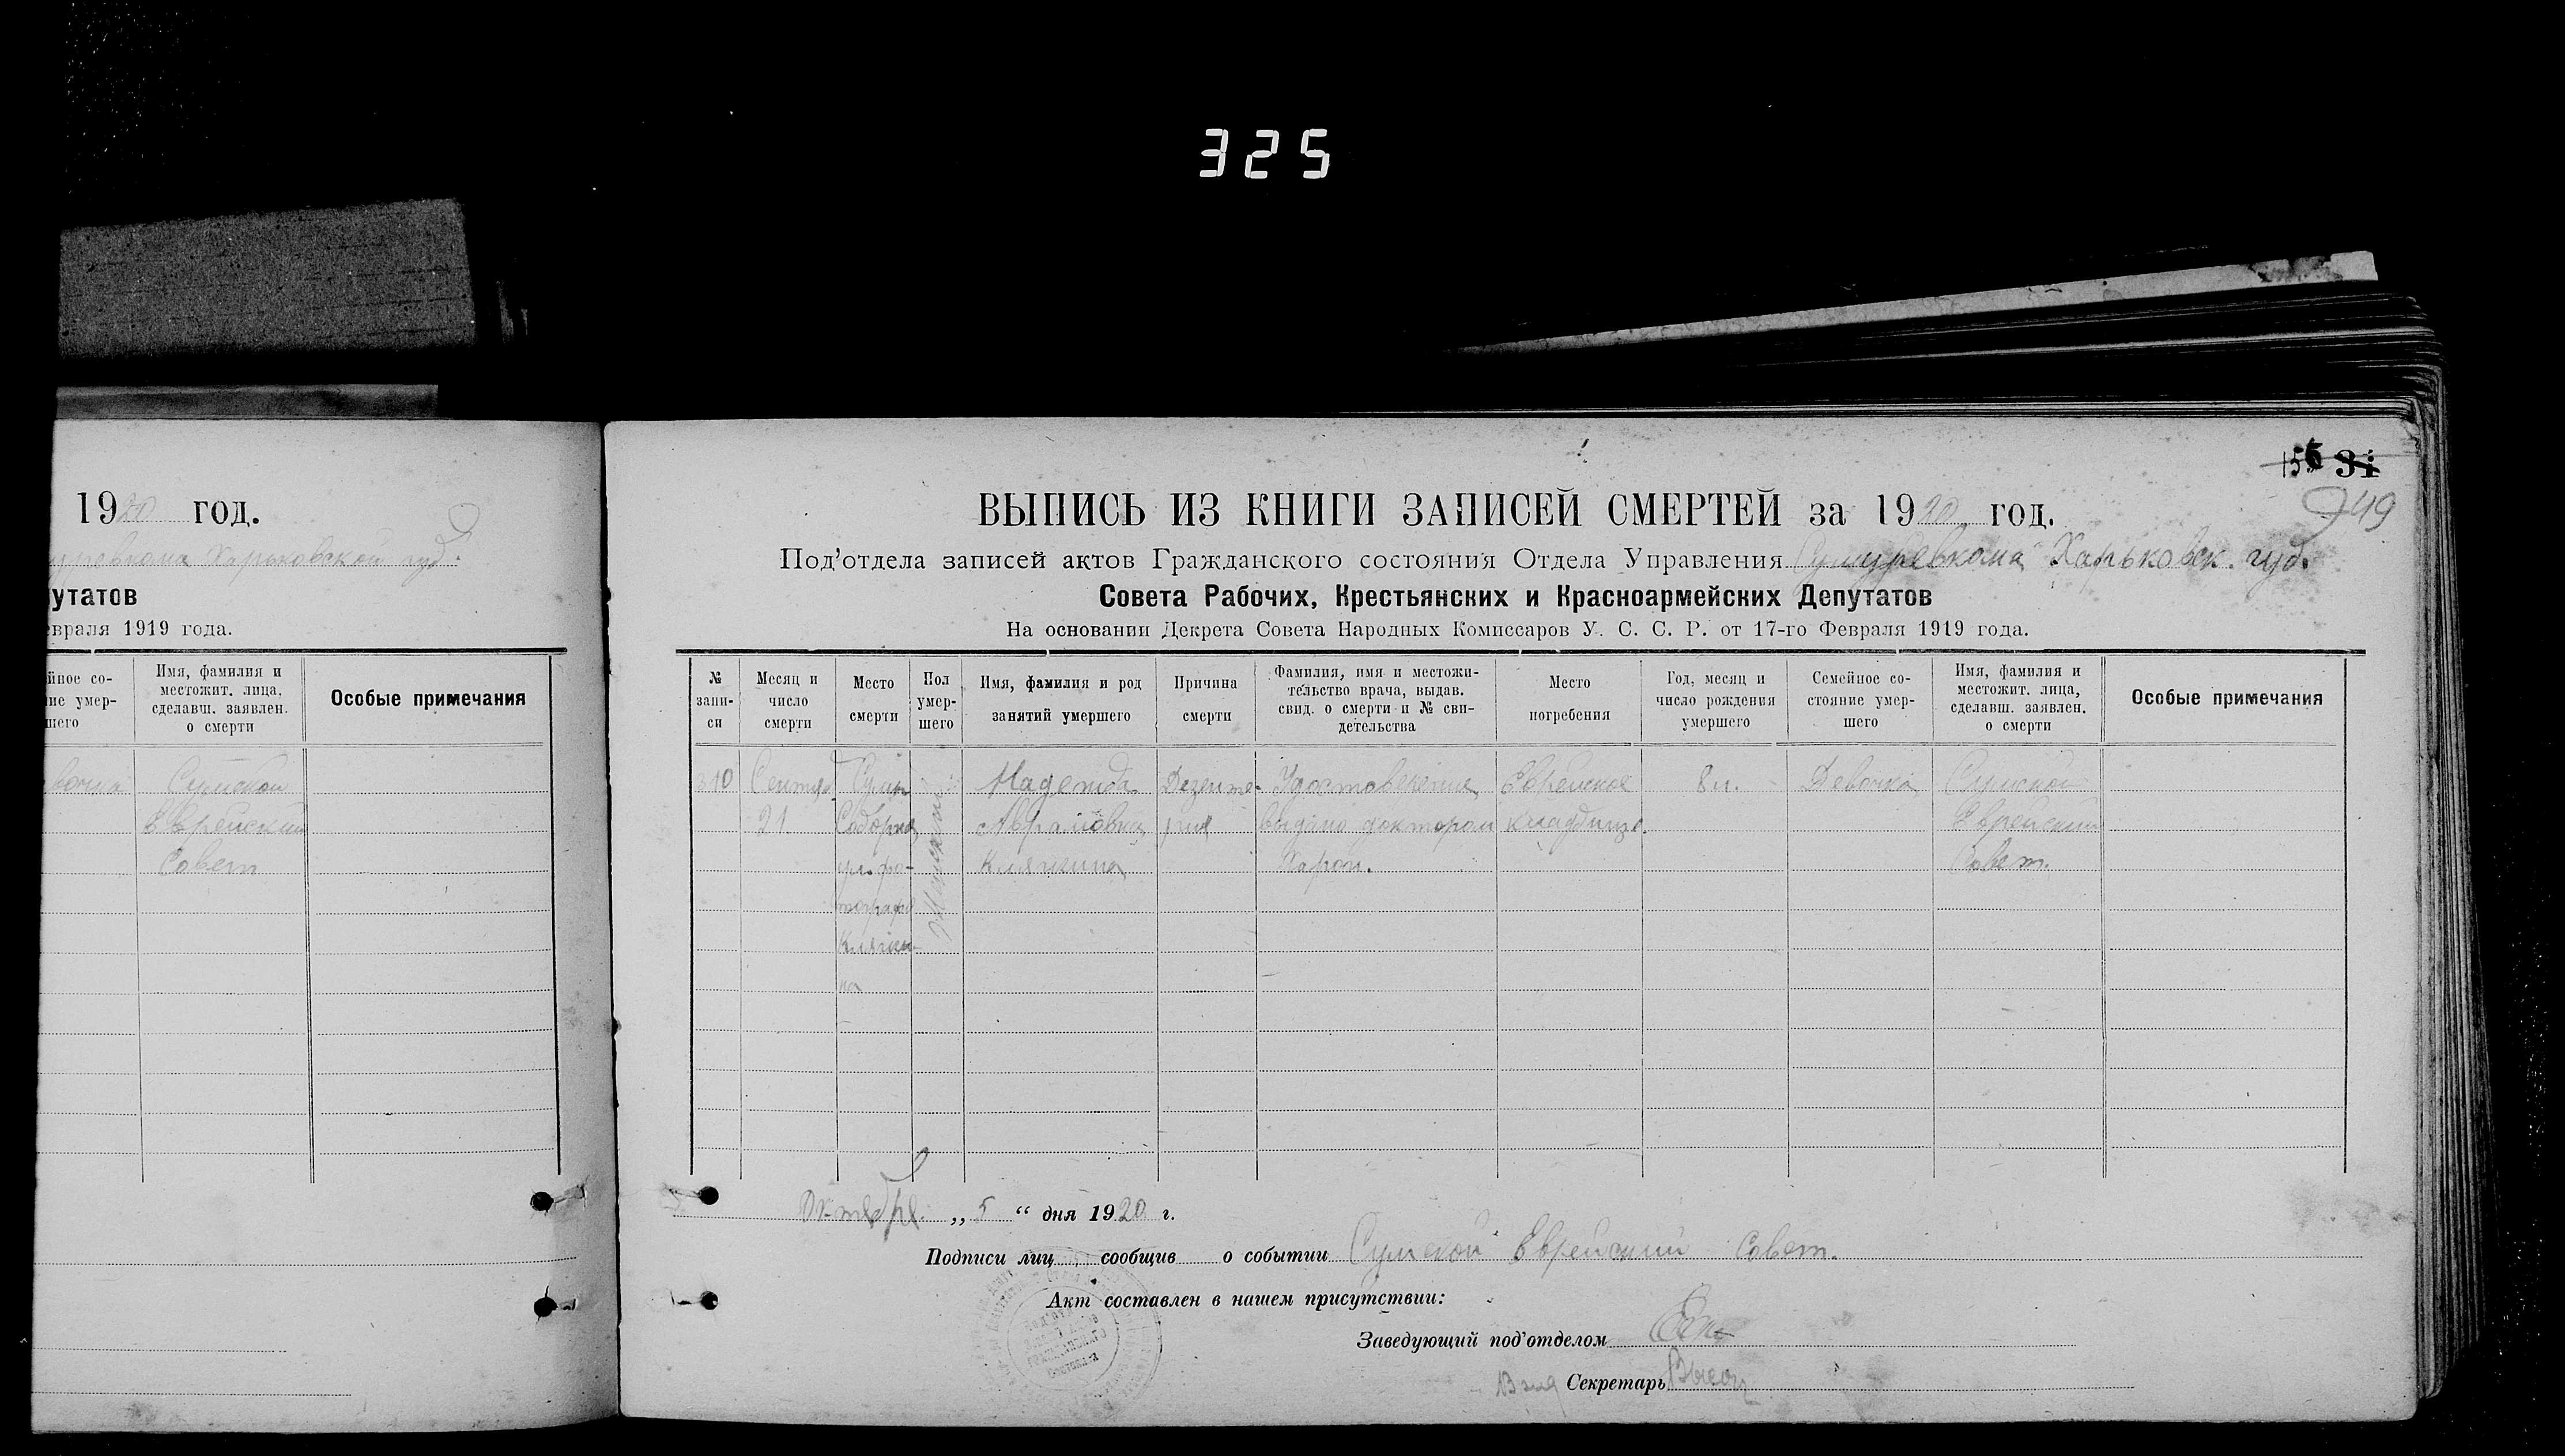 325
1920 год.
Харьковской губ.
утатов
евраля 1919 года.
йное со-
ние умер-
шего
Имя, фамилия и
местожит. лица,
сделавш. заявлен.
о смерти
Особые примечания
Сумской
Еврейский
Совет
31
ВЫПИСЬ ИЗ КНИГИ ЗАПИСЕЙ СМЕРТЕЙ за 1920 год.
Под'отдела записей актов Гражданского состояния Отдела Управления Сумуревкома Харьковск. губ.
Совета Рабочих, Крестьянских и Красноармейских Депутатов
На основании Декрета Совета Народных Комиссаров У. С. С. Р. от 17-го Февраля 1919 года.
№
запи-
си
Месяц и
число
смерти
Место
смерти
Пол
умер-
шего
Имя, фамилия и род
занятий умершего
Причина
смерти
Фамилия, имя и местожи-
тельство врача, выдав.
свид. о смерти и № сви-
детельства
Место
погребения
Год, месяц и
число рождения
умершего
Семейное со-
стояние умер-
шего
Имя, фамилия и
местожит. лица,
сделавш. заявлен.
о смерти
Особые примечания
310
21
Сумы
Соборна
Женский
Надежда
Абрамовна
Клячкина
Дизенте-
рия
Удостоверение
выдано доктором
Еврейское
кладбище.
8 л.
Девочка
Сумской
Еврейский
Совет.
Октября „ 5 “ дня 1920 г.
Подписи лиц сообщив о событии Сумской Еврейский Совет.
Акт составлен в нашем присутствии:
Заведующий под'отделом
Секретарь